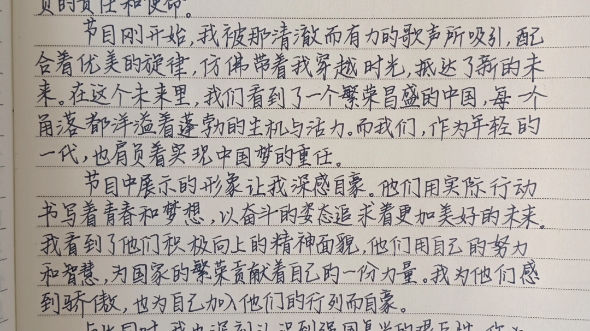 员的责任和使命。
节目刚开始,我被那清澈而有力的歌声所吸引,配
合着优美的旋律,仿佛带着我穿越时光,抵达了新的未
来。在这个未来里,我们看到了一个繁荣昌盛的中国,每一个
角落都洋溢着蓬勃的生机与活力。而我们,作为年轻的
一代,也肩负着实现中国梦的重任。
节目中展示的形象让我深感自豪。他们用实际行动
书写着青春和梦想,以奋斗的姿态追求着更加美好的未来。
我看到了他们积极向上的精神面貌,他们用自己的努力
和智慧,为国家的繁荣贡献着自己的一份力量。我为他们感
到骄傲,也为自己加入他们的行列而自豪。
与此同时,我也深刻认识到强国复兴的